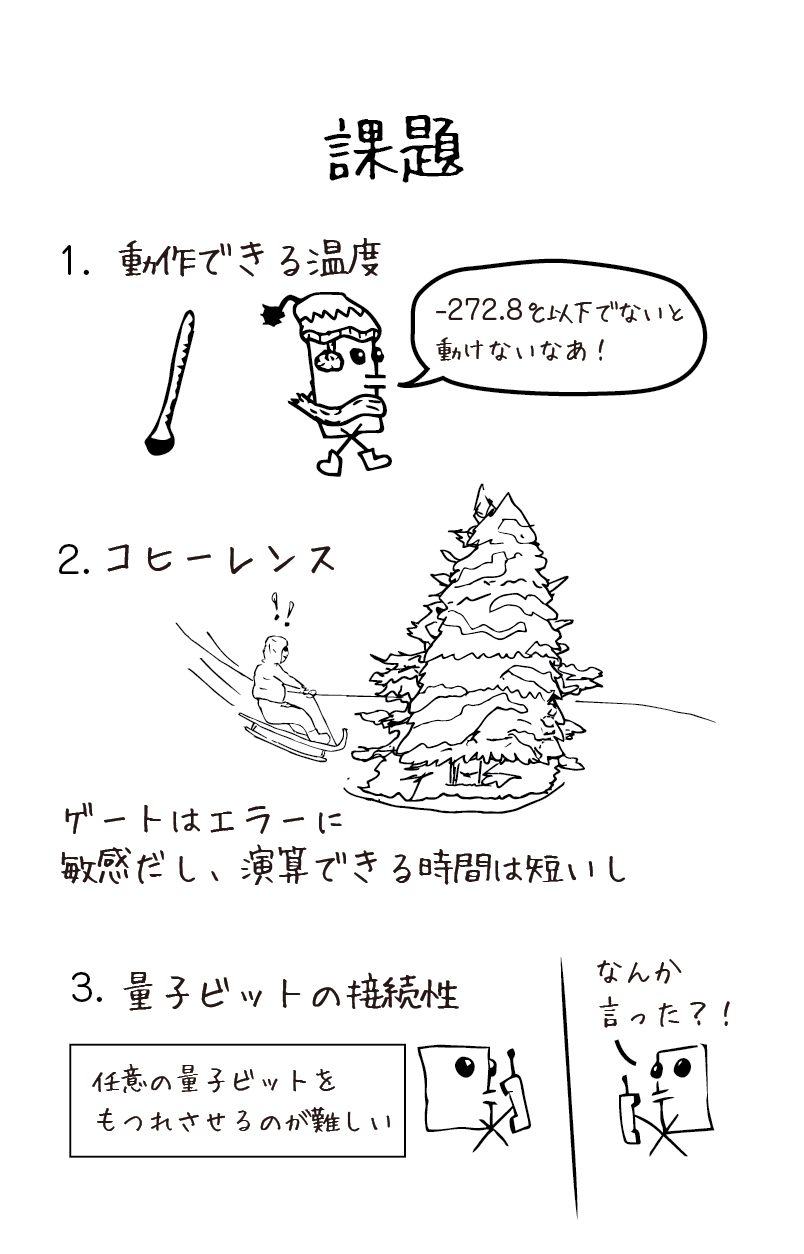 課題
1. 動作できる温度
-272.8℃以下でないと
動けないなあ!
2. コヒーレンス
!!
ゲートはエラーに
敏感だし、演算できる時間は短いし
3. 量子ビットの接続性
なんか
言った?!
任意の量子ビットを
もつれさせるのが難しい